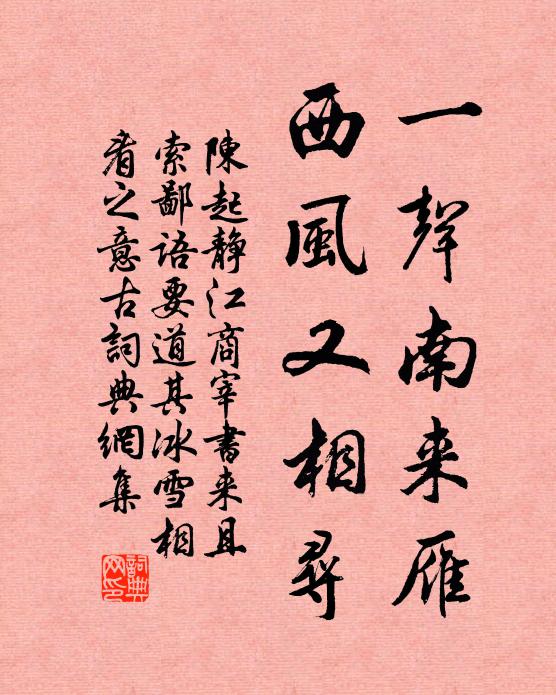 一聲南来雁
西風又相尋
陳起静江商宰書来且
索鄙语要道其冰雪相
看之意古詞典網集
詞典网印